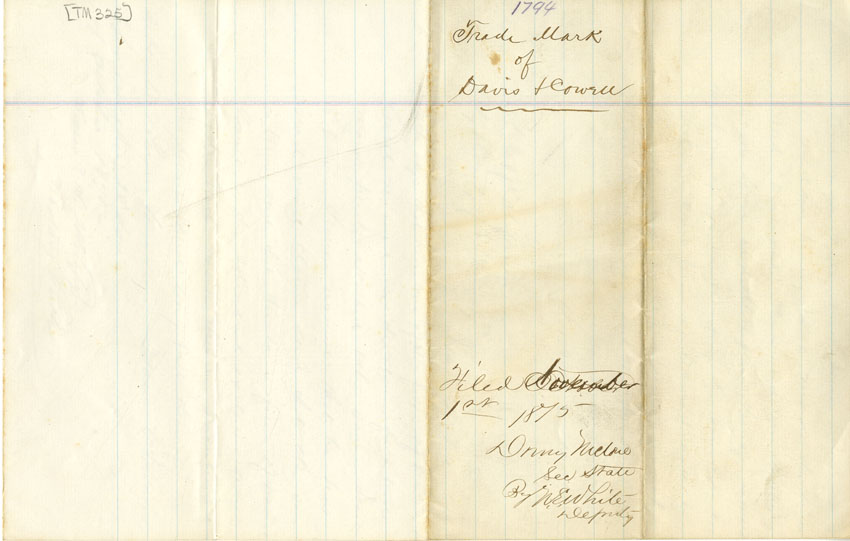 [TM 325]
1794
Trade Mark
of
Davis & Cowell
Filed November
1st 1875
Drury Melone
Sec State
By
White
Deputy